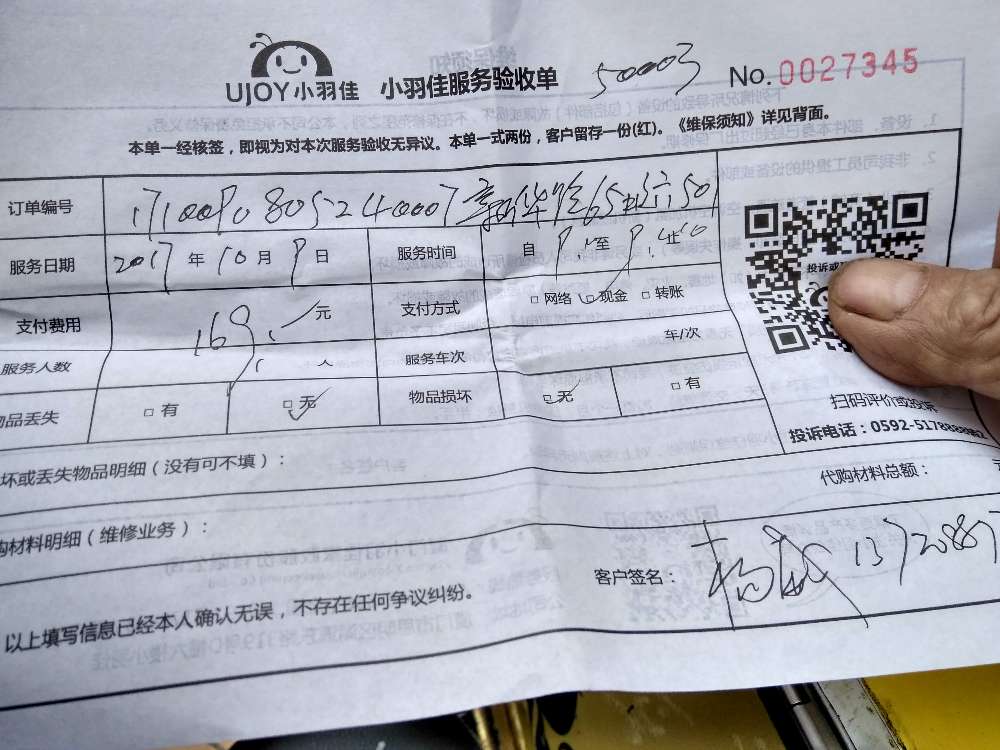 UJOY小羽佳 小羽佳服务验收单 50003 No. 0027345
本单一经核签，即视为对本次服务验收无异议。本单一式两份，客户留存一份(红)。《维保须知》详见背面。
订单编号 1710090805240007 新华路65 501
服务日期 2017 年 10 月 9 日 服务时间 自 9 至 9 止
支付费用 169 元 支付方式 □ 网络 □ 现金 □ 转账
服务人数 1 人 服务车次 车/次
物品丢失 □ 有 □ 无 物品损坏 □ 无 □ 有
投诉或
扫码评价或投诉
投诉电话：0592-517888
坏或丢失物品明细（没有可不填）：
代购材料总额：
购材料明细（维修业务）：
客户签名： 杨 1372087
以上填写信息已经本人确认无误，不存在任何争议纠纷。